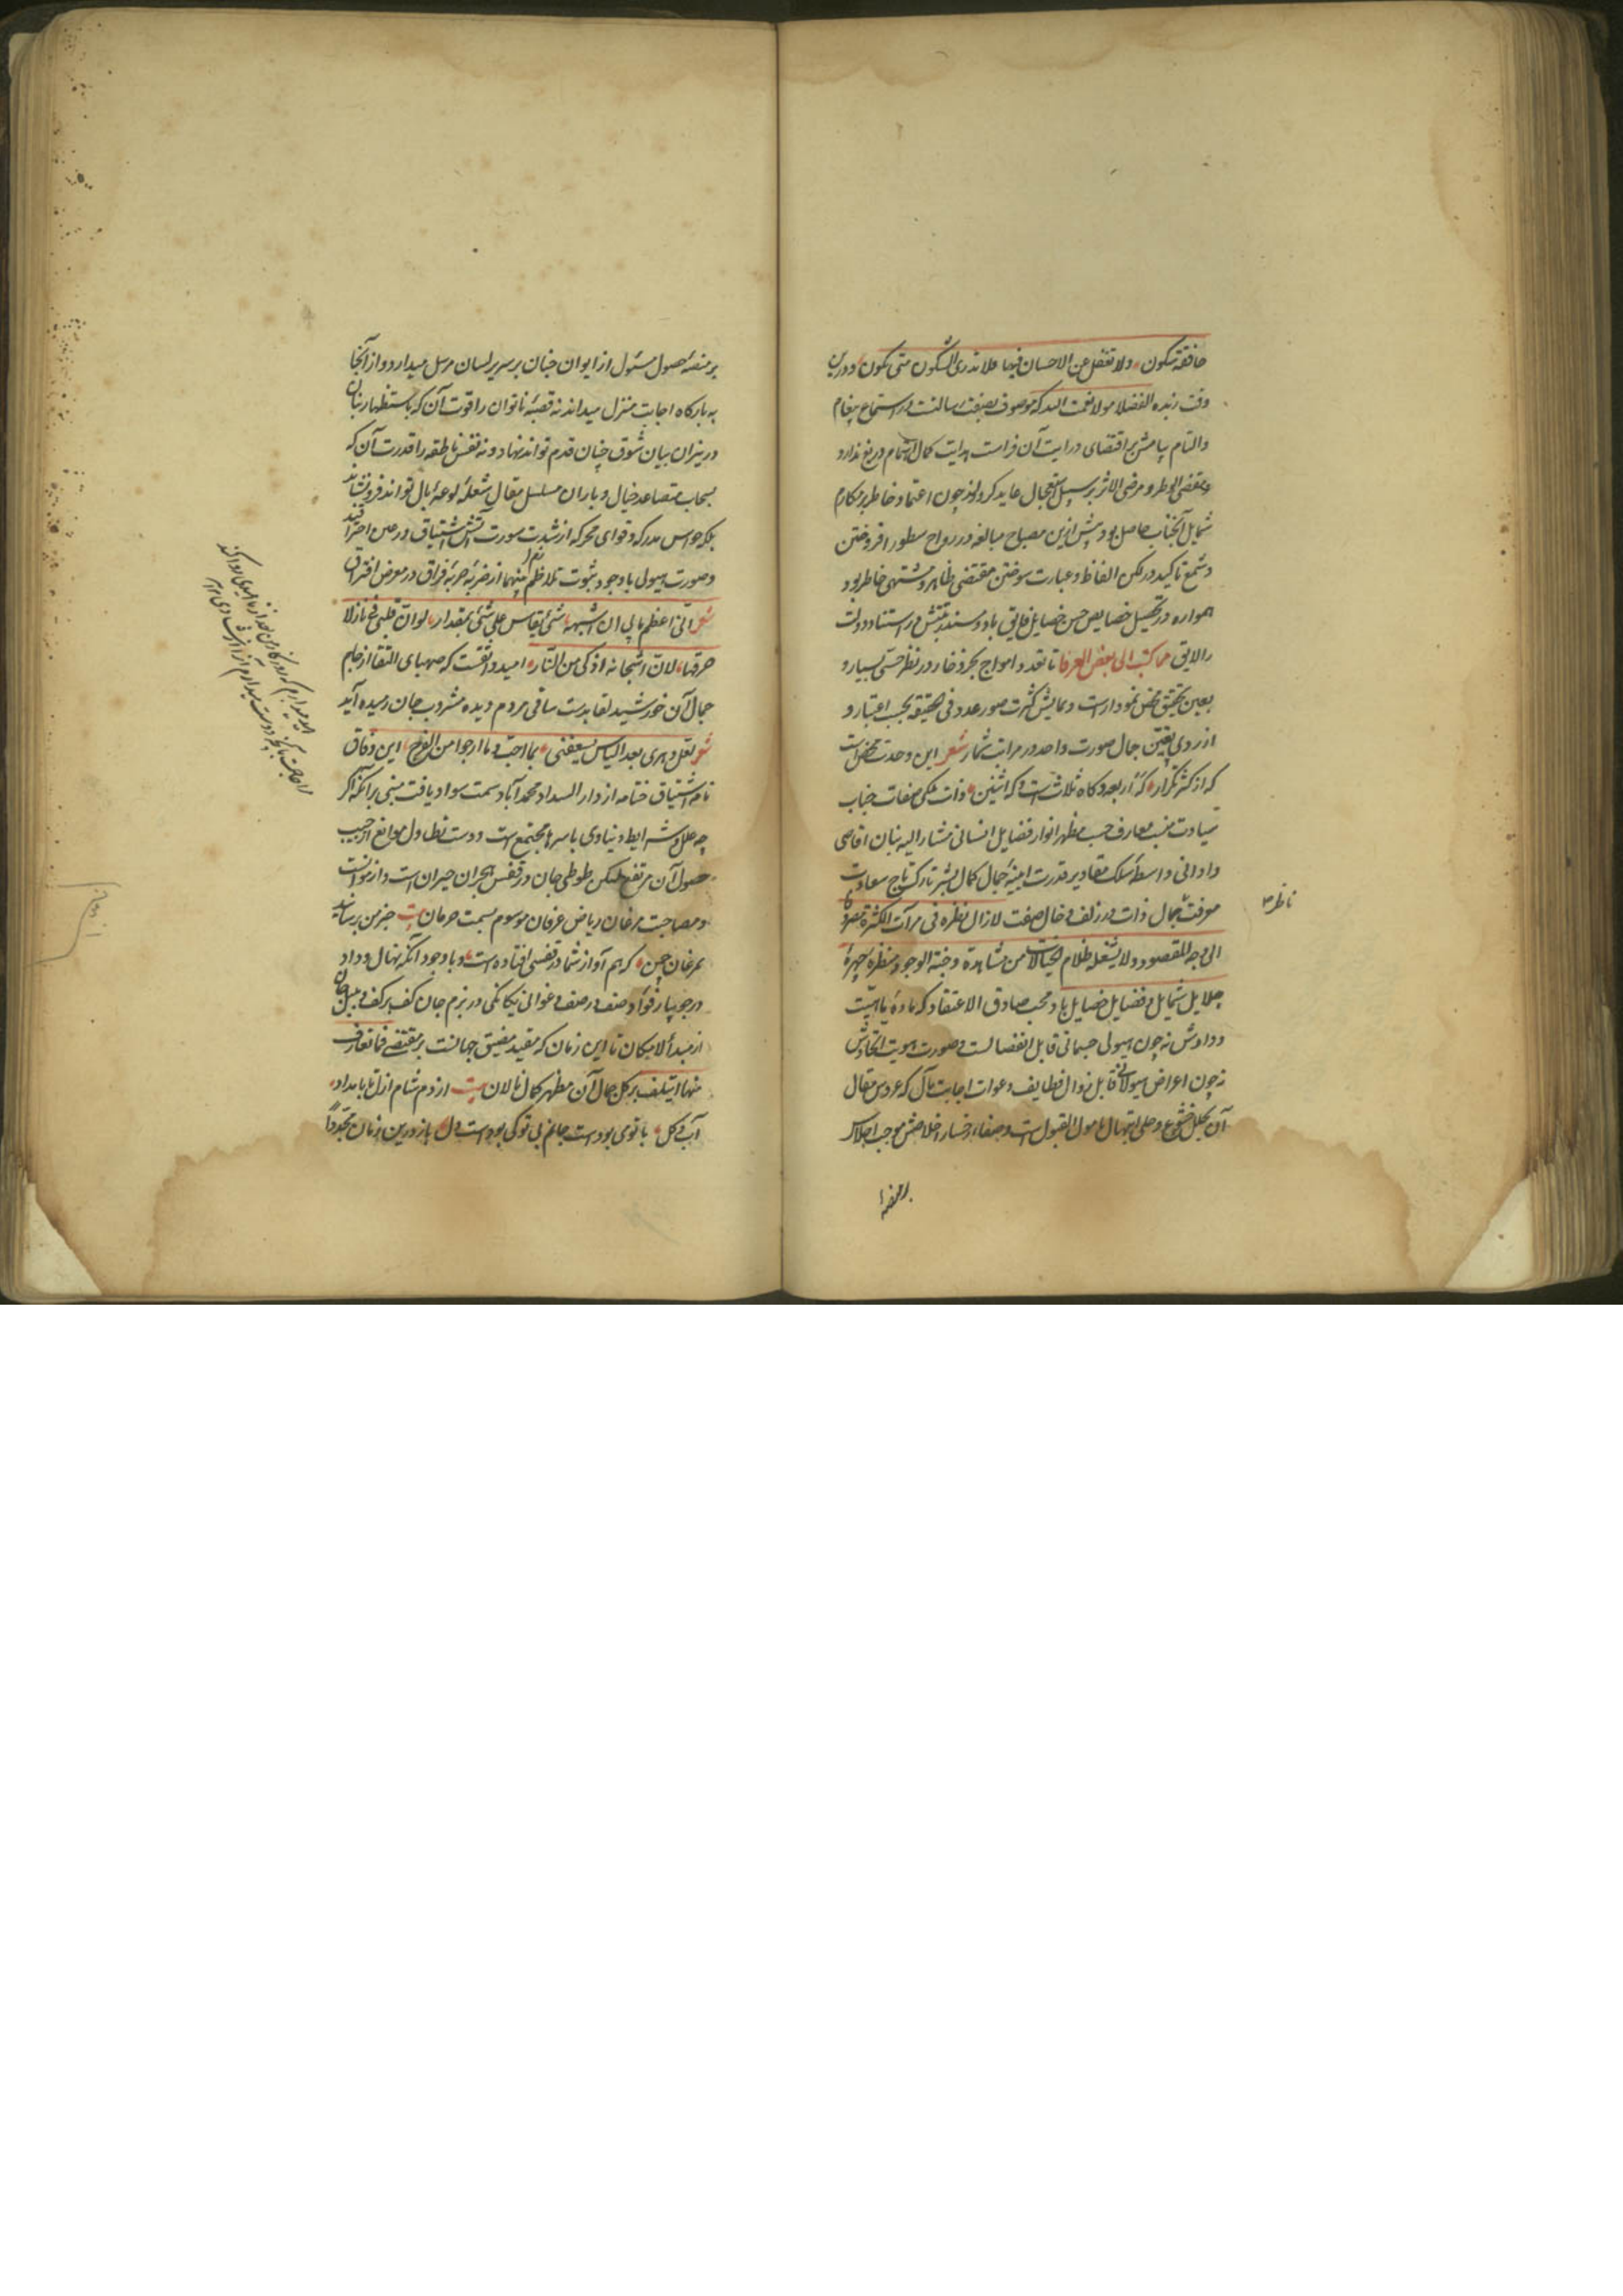 خافقة سکون ولا تغفل عن الاحسان فیها فلا تدری السکون متی یکون و درین
وقت زبده الفضلا مولانا نعمت الله که موصوف بصفت رسالت در استماع پیغام
والتیام پیامش بر اقتضای درایت آن فراست هدایت کمال اهتمام دریغ ندارد
و مقضی الوطر و مرضی الاثر بر سبیل استعجال عاید گرداند چون اعتماد خاطر بر مکارم
شمایل آنجناب حاصل بود پیش ازین مصباح مبالغه در رواح سطور افروختن
و شمع تاکید در لکن الفاظ و عبارت سوختن مقتضی ظاهر و مشتهی خاطر بود
همواره در تحصیل خصایص حسن خصایل فایق باد و مسند در استناد دولت
را لایق مما کتب الی بعض العرفا تا تعدد امواج بحر ذخار در نظر حسی بسیار و
بعین تحقیق محض نمودارست و نمایش کثرت صور عدد فی الحقیقه بحسب اعتبار و
از روی یقین جمال صورت واحد در مراتب شمار شعر این وحدت محض است
که از کثرت تکرار که اربعه و کاه ثلاث است و که اثنین ذات ملکی صفات جناب
سیادت منسب معارف حسب مظهر انوار فضایل انسانی مشار الیه بنان اقاصی
و ادانی واسطه سلک مقادیر قدرت ابنیه جمال کمال بشر تارک تاج سعادت
معرفت جمال ذات در زلف و خال صفت لازال نظره فی مرآت الکثرة مصروفا
الی وجه المقصود ولا یشغله ظلام الخیالات من مشاهدة وجنة الوجود منظره چهره
جلایل شمایل و فضایل خصایل باد محب صادق الاعتقاد که ماده ماهیت
و دادش نه چون هیولی جسمانی قابل انفصالست و صورت هویت اتحادش
نه چون اعراض هیولانی قابل زوال وظایف دعوات اجابت مآل که عروس مقال
آن بحلل خشوع و حلی ابتهال مامول القبول است و صفاء رخسار اخلاصش موجب اجلاس
بر منصه
ناظر
بر منصه حصول مسئول از ایوان جنان بر سریر لسان مرسل میدارد و از آنجا
به بارگاه اجابت منزل میداند نه قصبه ناتوان را قوت آن که باستظهار بنان
در میزان بیان شوق جنان قدم تواند نهاد و نه نفس ناطقه را قدرت آن که
بسحاب متصاعد خیال و باران مسلسل مقال شعله لوعه بال تواند فرو نشاند
بلکه حواس مدرکه و قوای محرکه از شدت سورت آتش اشتیاق در عین احتراقند
و صورت هیولی با وجود ثبوت تلازم منهما از ضربه حربه فراق در معرض افتراق
شعر انی اعظم ما بی ان اشبهه شیئا یقاس علی شیئی بمقدار لو ان قلبی فی نار لا
حرقها لان اشجانه اذکی من النار امید واثقست که صهبای التقا از جام
جمال آن خورشید لقا بدست ساقی مردم دیده مشروب جان رسیده آید
شعر لعل دهری بعد الیاس یسعفنی بما احب و ما ارجوا من الفرج این وفاق
نامه اشتیاق ختامه از دار السداد محمدآباد سمت سواد یافت مبنی بر آنکه اگر
چه علل و شرایط دنیاوی باسرها مجتمع است و دست تطاول موانع از جیب
حصول آن مرتفع لیکن طوطی جان در قفس هجران حیران است و از موانست
و مصاحبت مرغان ریاض عرفان موسوم بسمت حرمان بیت خبر من برسانید
بمرغان چمن که هم آواز شما در قفسی افتاده است و با وجود آنکه نهال وداد
در جویبار فؤاد صنف در صنف و غوانی یگانگی در بزم جان کف بر کف و بلبل جان
از مبدأ لا مکان تا این زمان که مقید مضیق جهانست بر مقتضی فما تعارف
منها ائتلف بر گل جمال آن مظهر کمال نالان بیت از دم شام ازل تا بامداد
آب و گل با توی بودست جانم بی تو کی بودست دل باز درین زمان مجددا